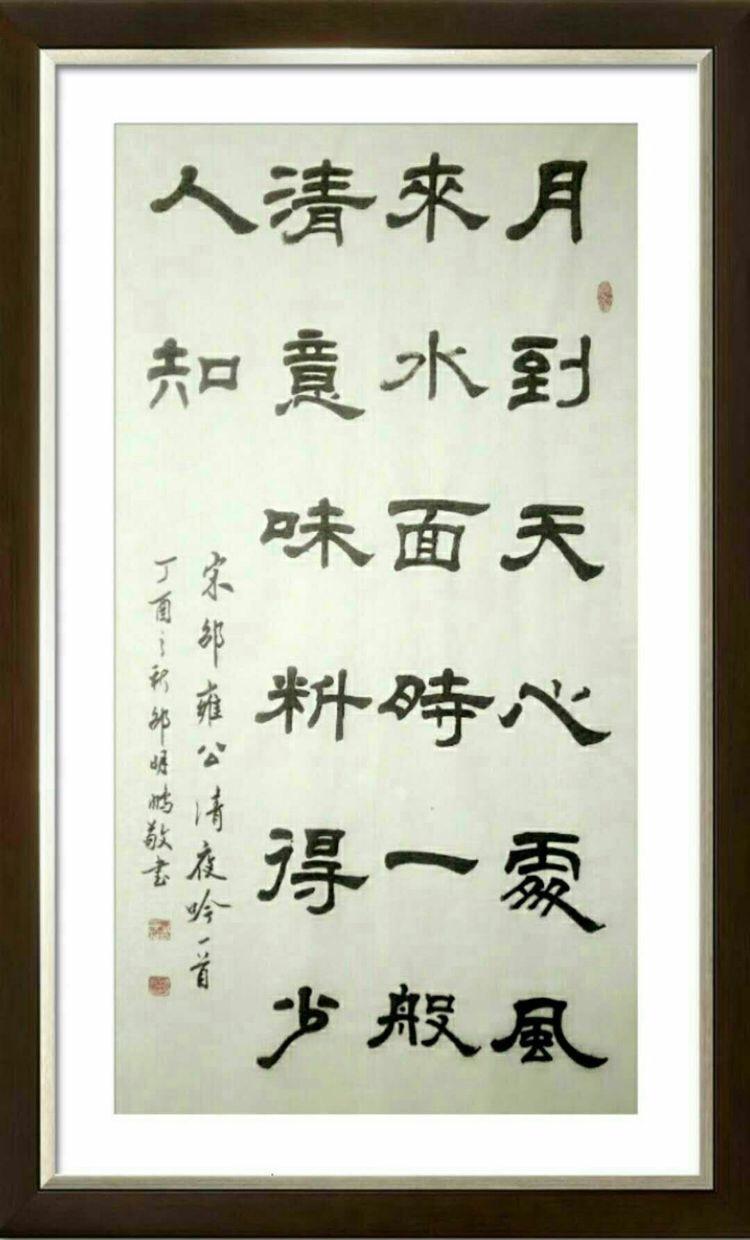 月到天心處風
來水面時一般
清意味料得少
人知
宋邵雍公清夜吟一首
丁酉之秋邵明鵬敬書